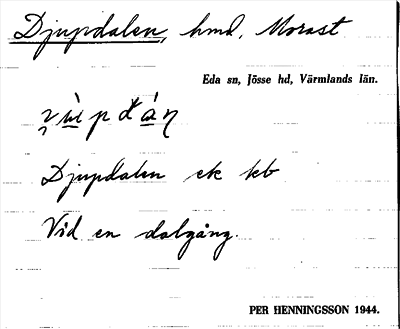 Djupdalen, hmd, Morast
Eda sn, Jösse hd, Värmlands län.
Djupdalen ek kb
Vid en dalgång.
PER HENNINGSSON 1944.